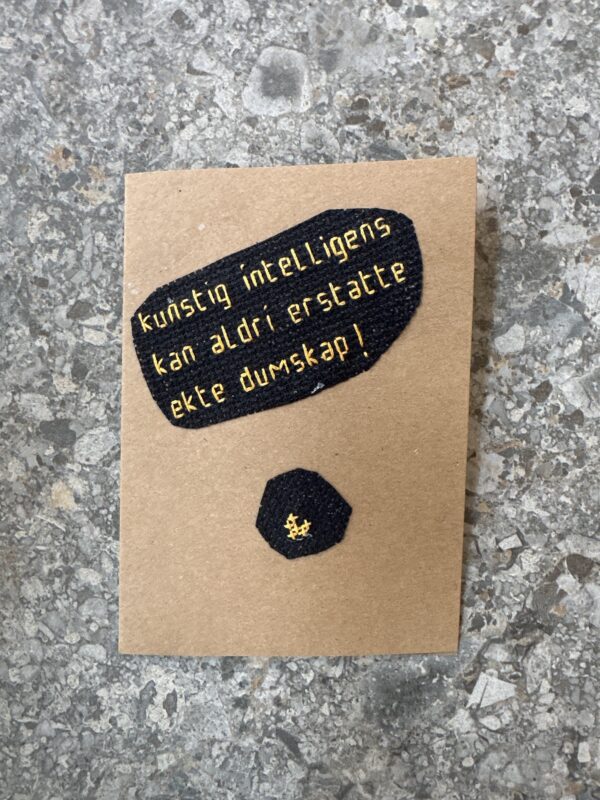 kunstig intelligens
kan aldri erstatte
ekte dumskap!